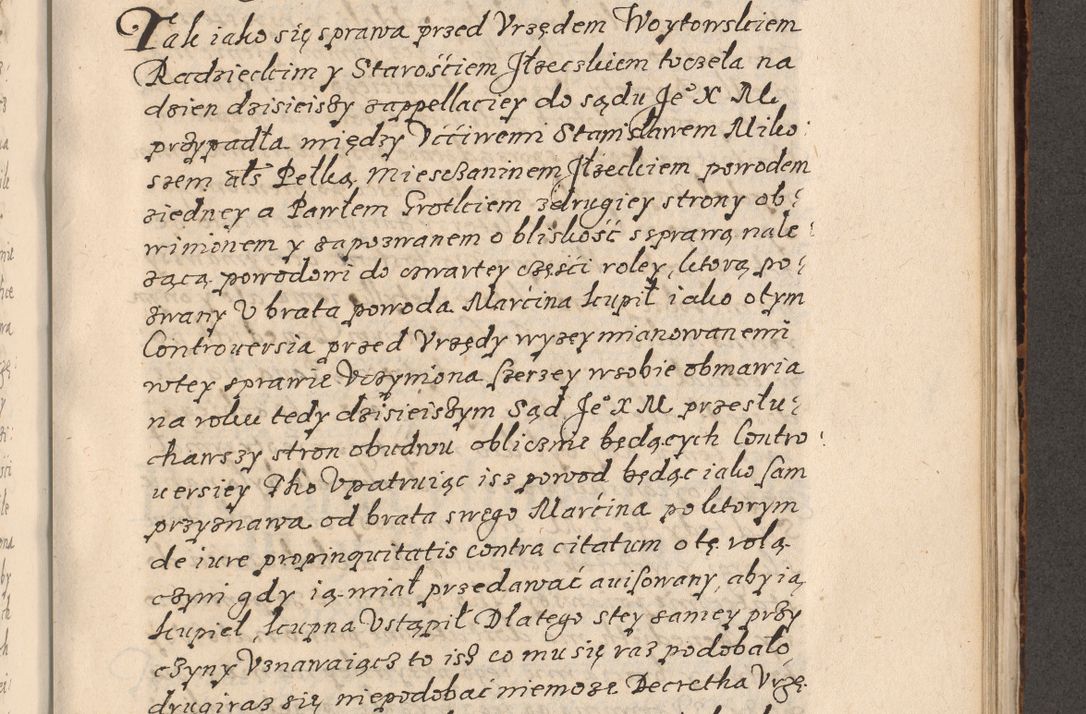 Tak iako się sprawa przed Vrzędem Woytowskiem
Radzieckim y Starośćiem Jłzeczkiem toczeła na
dzien dzisieiszy zappellaciey do sądu Je° X M
przypadła między Vććiwemi Stanisławem Miko:
szem als Pełką Mieszczaninem Jłzeckiem powodem
ziedney a Pawłem Grotkiem zdrugiey strony ob:
winionem y zapozwanem o bliskość sprawą nale:
żącą powodowi do czwartey częśći roley, ktorą po:
zwany V brata powoda Marćina kupił iako otym
Controversia przed Vrzędy wyzey mianowanemi
wtey sprawie Vczyniona szerzey wsobie obmawia
na roku tedy dzisieiszym Sąd Je° X M przesłu:
chawszy stron obudwu oblicznie będących Contro:
versiey Tho Vpatruiąc isz powod będąc iako sam
przyznawa od brata swego Marćina po ktorym
de iure propinquitatis contra citatum o tę rolą
czyni gdy ią miał przedawać avisowany, aby ią
kupieł, kupna Vstąpił Dlatego stey samey przy
czyny Vznawaiącz to isz co mu się raz podobało
drugiraz się niepodobać niemoze Decretha Vrzę: